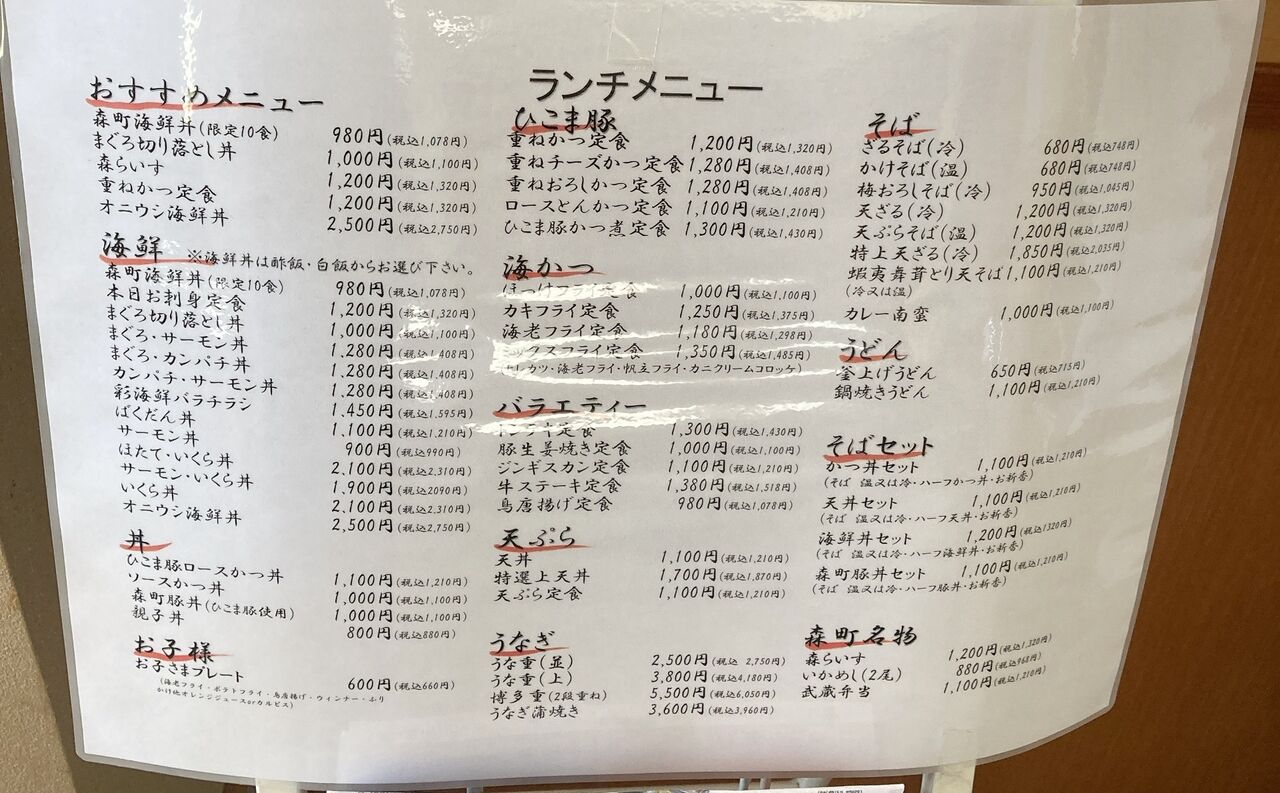 ランチメニュー
おすすめメニュー
森町海鮮丼(限定10食) 980円(税込1,078円)
まぐろ切り落とし丼 1,000円(税込1,100円)
森らいす 1,200円(税込1,320円)
重ねかつ定食 1,200円(税込1,320円)
オニウシ海鮮丼 2,500円(税込2,750円)
海鮮 ※海鮮丼は酢飯・白飯からお選び下さい。
森町海鮮丼(限定10食) 980円(税込1,078円)
本日お刺身定食 1,200円(税込1,320円)
まぐろ切り落とし丼 1,000円(税込1,100円)
まぐろ・サーモン丼 1,280円(税込1,408円)
まぐろ・カンパチ丼 1,280円(税込1,408円)
カンパチ・サーモン丼 1,280円(税込1,408円)
彩海鮮バラチラシ 1,450円(税込1,595円)
ばくだん丼 1,100円(税込1,210円)
サーモン丼 900円(税込990円)
ほたて・いくら丼 2,100円(税込2,310円)
サーモン・いくら丼 1,900円(税込2090円)
いくら丼 2,100円(税込2,310円)
オニウシ海鮮丼 2,500円(税込2,750円)
丼
ひこま豚ロースかつ丼 1,100円(税込1,210円)
ソースかつ丼 1,000円(税込1,100円)
森町豚丼(ひこま豚使用) 1,000円(税込1,100円)
親子丼 800円(税込880円)
お子様
お子さまプレート 600円(税込660円)
(海老フライ・ポテトフライ・鳥唐揚げ・ウィンナー・ふり
かけ他オレンジジュースorカルピス)
ひこま豚
重ねかつ定食 1,200円(税込1,320円)
重ねチーズかつ定食 1,280円(税込1,408円)
重ねおろしかつ定食 1,280円(税込1,408円)
ロースとんかつ定食 1,100円(税込1,210円)
ひこま豚かつ煮定食 1,300円(税込1,430円)
海かつ
ほっけフライ定食 1,000円(税込1,100円)
カキフライ定食 1,250円(税込1,375円)
海老フライ定食 1,180円(税込1,298円)
ミックスフライ定食 1,350円(税込1,485円)
(ヒレカツ・海老フライ・帆立フライ・カニクリームコロッケ)
バラエティー
トンテキ定食 1,300円(税込1,430円)
豚生姜焼き定食 1,000円(税込1,100円)
ジンギスカン定食 1,100円(税込1,210円)
牛ステーキ定食 1,380円(税込1,518円)
鳥唐揚げ定食 980円(税込1,078円)
天ぷら
天丼 1,100円(税込1,210円)
特選上天丼 1,700円(税込1,870円)
天ぷら定食 1,100円(税込1,210円)
うなぎ
うな重(並) 2,500円(税込 2,750円)
うな重(上) 3,800円(税込4,180円)
博多重(2段重ね) 5,500円(税込6,050円)
うなぎ蒲焼き 3,600円(税込3,960円)
そば
ざるそば(冷) 680円(税込748円)
かけそば(温) 680円(税込748円)
梅おろしそば(冷) 950円(税込1,045円)
天ざる(冷) 1,200円(税込1,320円)
天ぷらそば(温) 1,200円(税込1,320円)
特上天ざる(冷) 1,850円(税込2,035円)
蝦夷舞茸とり天そば 1,100円(税込1,210円)
(冷又は温)
カレー南蛮 1,000円(税込1,100円)
うどん
釜上げうどん 650円(税込715円)
鍋焼きうどん 1,100円(税込1,210円)
そばセット
かつ丼セット 1,100円(税込1,210円)
(そば 温又は冷・ハーフかつ丼・お新香)
天丼セット 1,100円(税込1,210円)
(そば 温又は冷・ハーフ天丼・お新香)
海鮮丼セット 1,200円(税込1320円)
(そば 温又は冷・ハーフ海鮮丼・お新香)
森町豚丼セット 1,100円(税込1,210円)
(そば 温又は冷・ハーフ豚丼・お新香)
森町名物
森らいす 1,200円(税込1,320円)
いかめし(2尾) 880円(税込968円)
武蔵弁当 1,100円(税込1,210円)